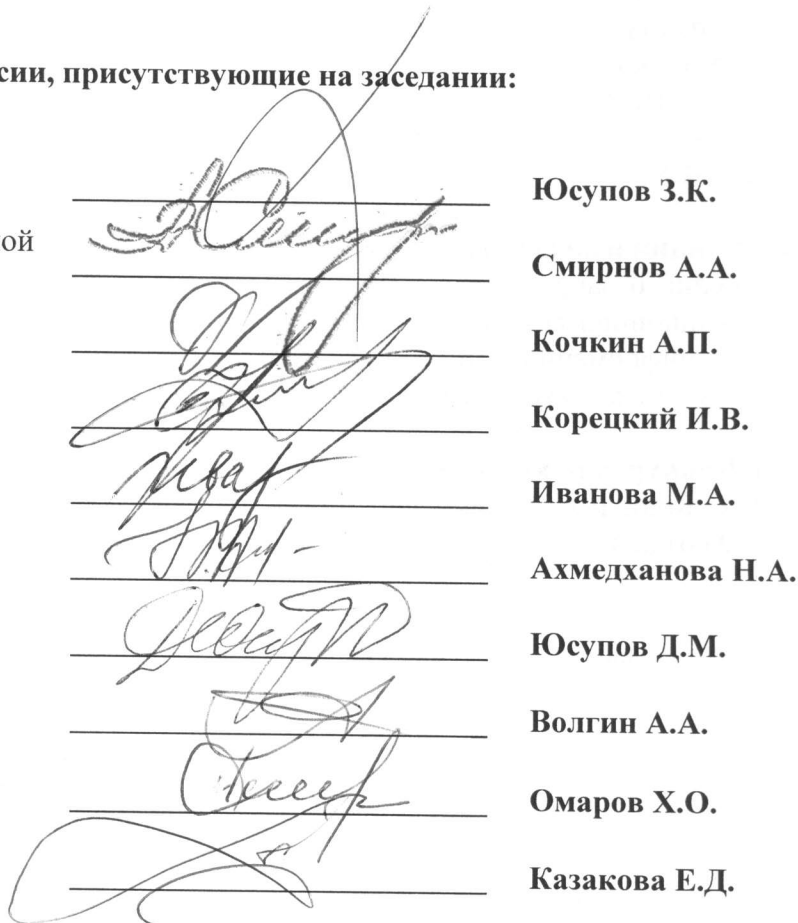 сии, присутствующие на заседании:
Юсупов З.К.
ой
Смирнов А.А.
Кочкин А.П.
Корецкий И.В.
Иванова М.А.
Ахмедханова Н.А.
Юсупов Д.М.
Волгин А.А.
Омаров Х.О.
Казакова Е.Д.